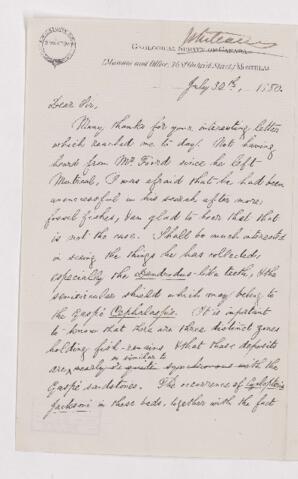 Whiteaves
GEOLOGICAL SURVEY OF CANADA
Museum and Office, 76 St Gabriel Street, MONTREAL
July 30th, 1880.
Dear Sir,
Many thanks for your interesting letter
which reached me to day. Not having
heard from Mr Foord since he left
Montreal, I was afraid that he had been
unsuccessful in his search after more
fossil fishes, & am glad to hear that that
is not the case. I shall be much interested
in seeing the things he has collected,
especially the Dendrodus-like teeth, & the
semicircular shield which may belong to
the Gaspé Cephalaspis. It is important
to know that there are three distinct zones
holding fish-remains & that these deposits
or similar to
are nearly synchronous with the
Gaspé sandstones. The occurrence of Cyclopteris
Jacksoni in these beds, together with the fact